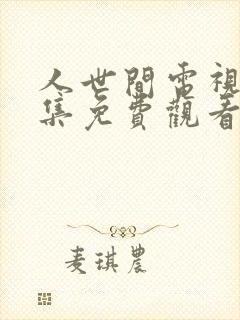 人世間電視
集免費觀看
麦琪農